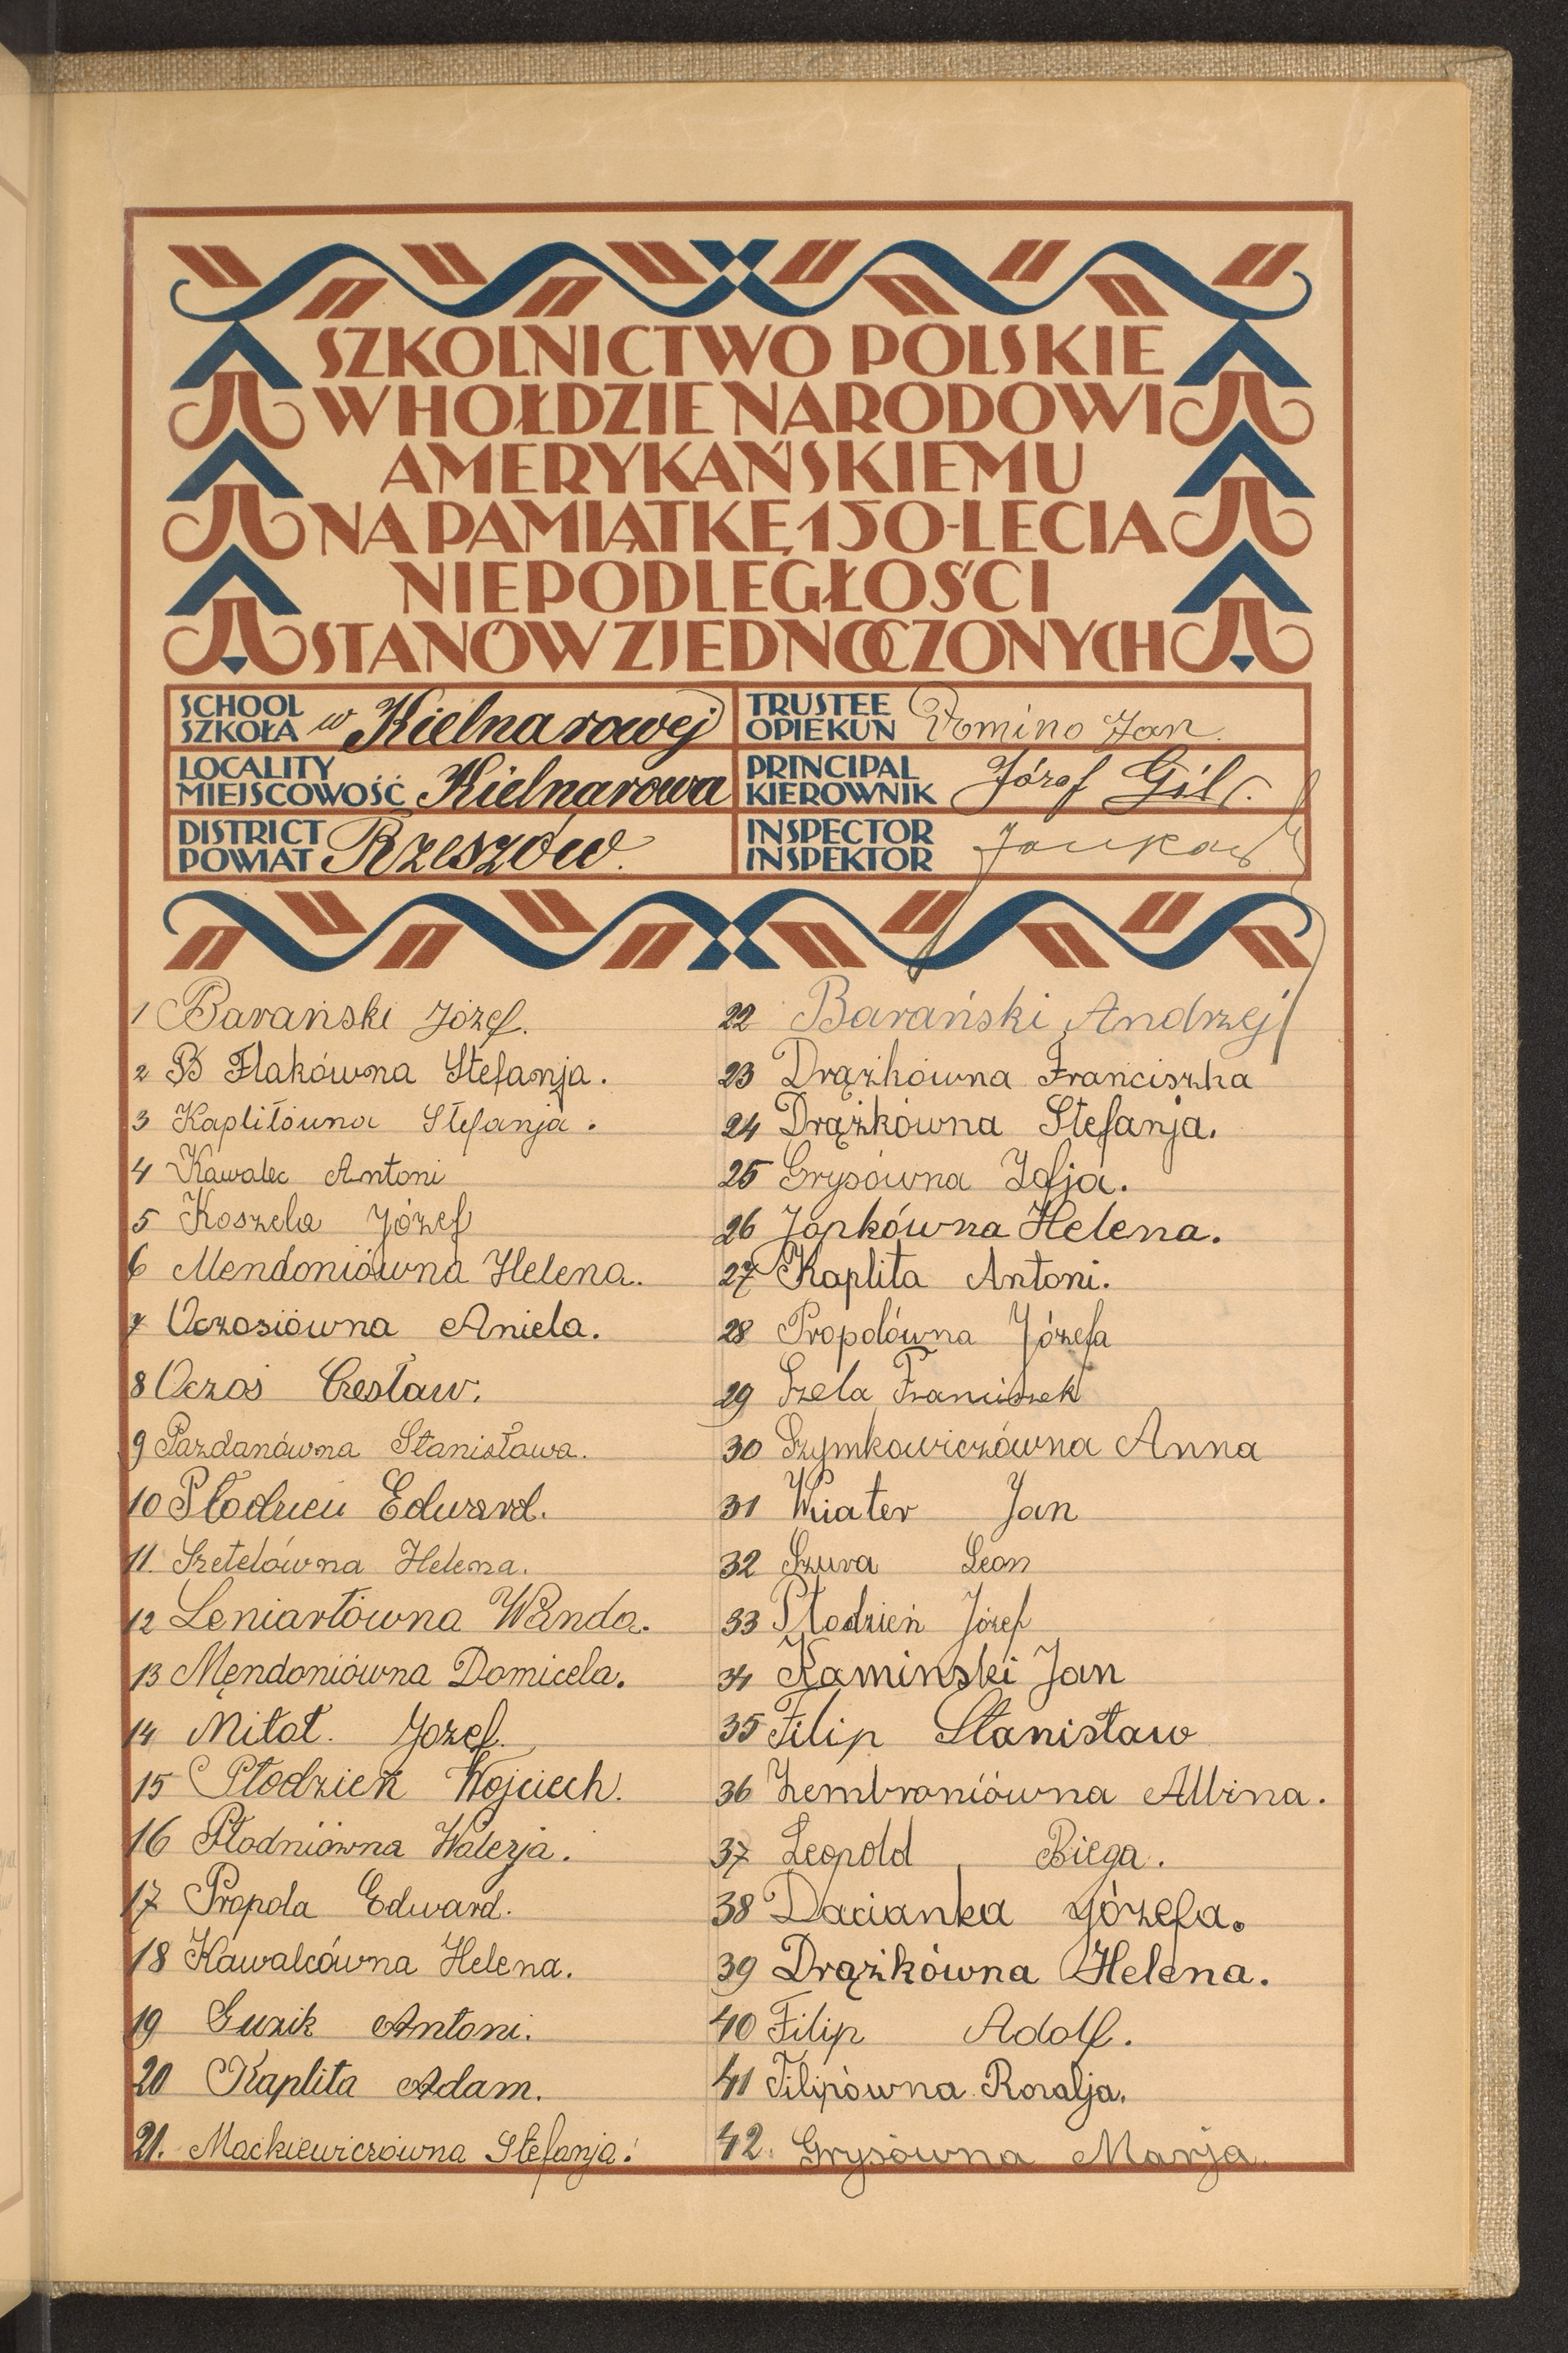 SZKOLNICTWO POLSKIE
W HOŁDZIE NARODOWI
AMERYKAŃSKIEMU
NA PAMIĄTKĘ 150-LECIA
NIEPODLEGŁOŚCI
STANÓW ZJEDNOCZONYCH
SCHOOL
SZKOŁA w Kielnarowej
TRUSTEE
OPIEKUN Domino Jan.
LOCALITY
MIEJSCOWOŚĆ Kielnarowa
PRINCIPAL
KIEROWNIK Józef Gil
DISTRICT
POWIAT Rzeszów.
INSPECTOR
INSPEKTOR
1 Barański Józef.
2 B Flakówna Stefanja.
3 Kaplitówna Stefanja.
4 Kawalec Antoni
5 Koszela Józef
6 Mendoniówna Helena.
7 Oczosiówna Aniela.
8 Oczoś Czesław.
9 Pazdanówna Stanisława.
10 Płodzień Edward.
11. Szetelówna Helena.
12 Leniartówna Wanda.
13 Męndoniówna Domicela.
14 Mitał. Jozef.
15 Płodzień Wojciech.
16 Płodniówna Walerja.
17 Propola Edward.
18 Kawalcówna Helena.
19 Guzik Antoni.
20 Kaplita Adam.
21. Maćkiewiczówna Stefanja.
22 Barański Andrzej
23 Drążkówna Franciszka
24 Drążkówna Stefanja.
25 Grysówna Zofja.
26 Jopkówna Helena.
27 Kaplita Antoni.
28 Propolówna Józefa
29 Szela Franciszek
30 Szymkowiczówna Anna
31 Wiater Jan
32 Szura Leon
33 Płodzień Józef
34 Kaminski Jan
35 Filip Stanisław
36 Zembroniówna Albina.
37 Leopold Biega.
38 Dacianka Józefa.
39 Drążkówna Helena.
40 Filip Adolf.
41 Filipówna Rozalja.
42. Grysówna Marja.